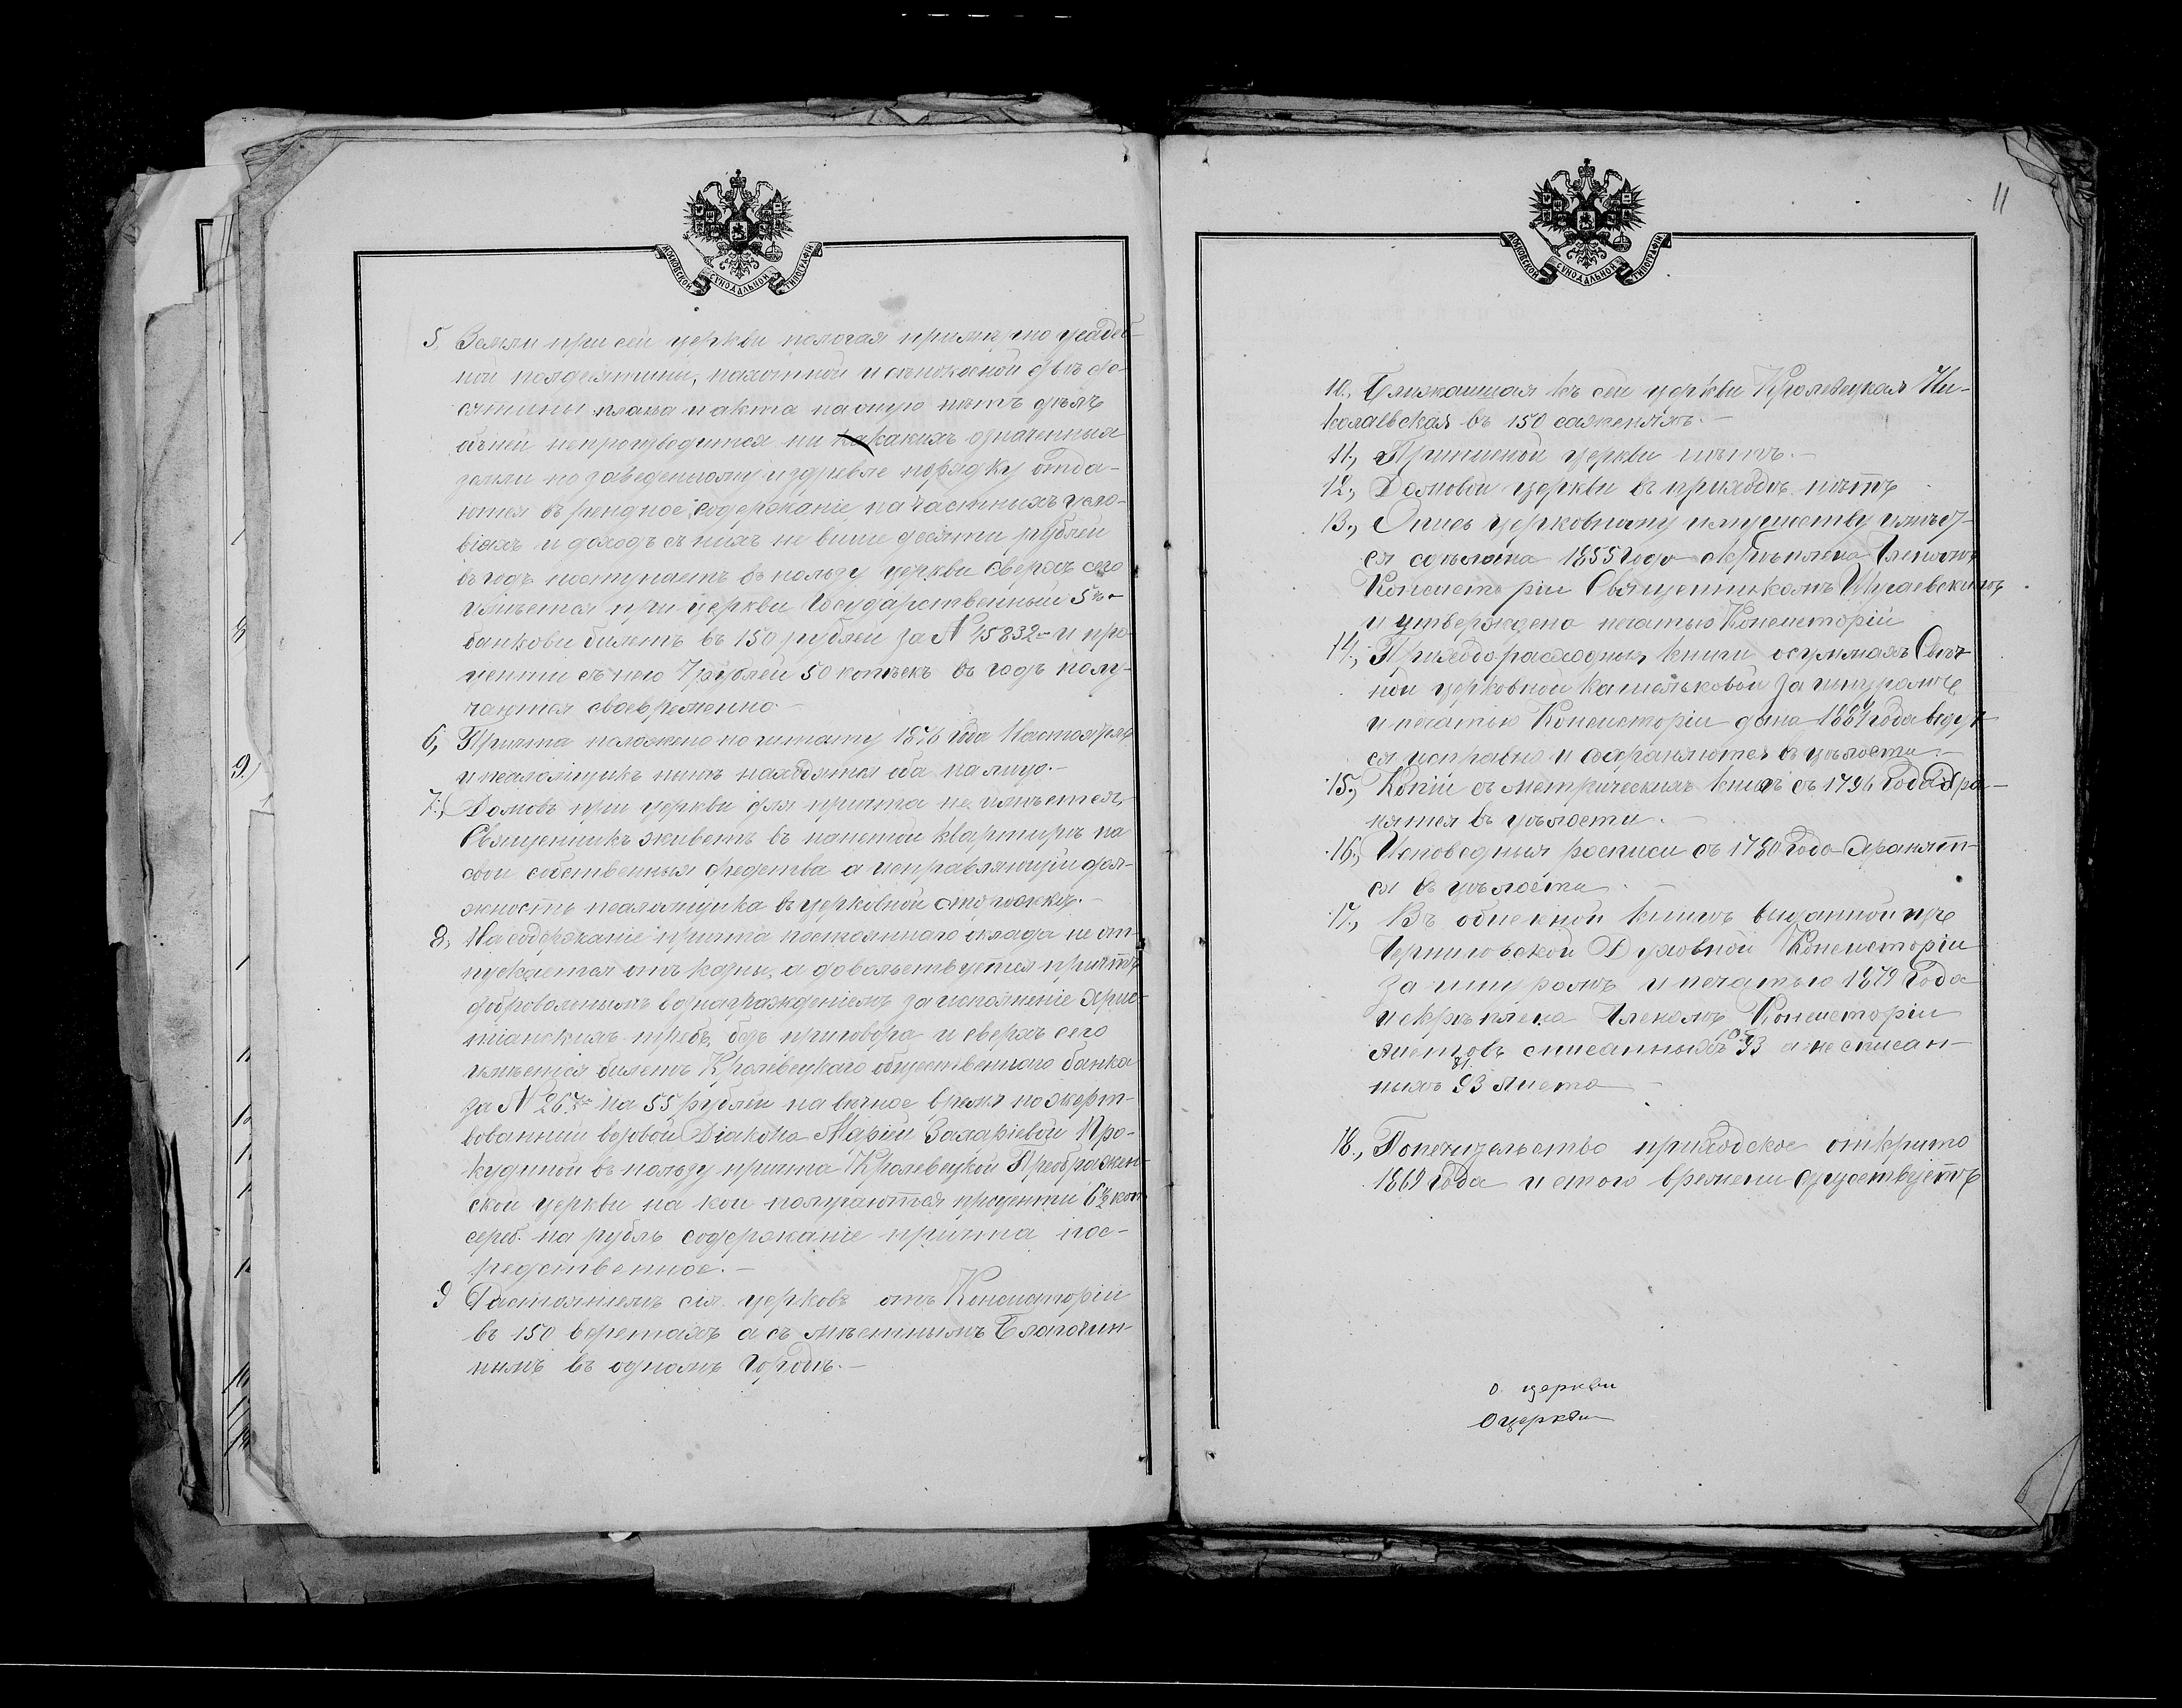 МОСКОВСКОЙ СѴНОДАЛЬНОЙ ТИПОГРАФІИ
5, Земли при сей церкви полагая примѣрно усадеб-
ной полдесятины, пахотной и сѣнокосной двѣ де-
сятины плана и акта на оную нѣтъ дѣлъ
объ ней непроизводится ни какихъ означенныя
земли по заведенному издревле порядку отда-
ются въ рендное содержаніе на частныхъ усло-
віяхъ и доходъ съ нихъ не выше десяти рублей
въ годъ поступаетъ въ пользу церкви сверхъ сего
имѣется при церкви Государственный 5%
банкови билетъ въ 150 рублей за № 15832 и про-
центи съ него 7 рублей 50 копѣекъ въ годъ полу-
чаются своевременно.-
6, Причта положено по штату 1876 года Настоятель
и псаломщикъ нынѣ находятся оба на лицо.-
7., Домовъ при церкви для причта не имѣется,
Священникъ живетъ въ нанетой квартирѣ на
свои собственныя средства а исправляющій дол-
жность псаломщика въ церковной сторожкѣ.-
8, На содержаніе причта постояннаго оклада не от-
пускается отъ казны, а довольствуется причтъ
добровольнымъ вознагражденіемъ за исполненіе хрис-
тіанскихъ требъ, безъ приговора и сверхъ сего
имѣется билетъ Кролевецкаго общественнаго банка
за № 267 на 55 рублей на вѣчное время пожерт-
вованний вдовой Діакона Маріей Захаріевой Про-
кудиной въ пользу причта Кролевецкой Преображен-
ской церкви на кои получаются проценти 6½ коп.
сереб. на рубль содержаніе причта пос-
редственное.-
9 Растояніемъ сія церковь отъ Консисторіи
въ 150 верстахъ а съ мѣстнымъ Благочин-
нымъ въ одномъ городѣ.-
11
МОСКОВСКОЙ СѴНОДАЛЬНОЙ ТИПОГРАФІИ
10., Ближайшая къ сей церкви Кролевецкая Ни-
колаевская въ 150 саженяхъ.-
11., Приписной церкви нѣтъ.-
12., Домовой церкви въ приходѣ нѣтъ
13., Опись церковному имуществу имѣет-
ся сдѣлана 1855 года скрѣплена Членомъ
Консисторіи Священникомъ
и утверждена печатью Консисторіи
14., Приходорасходныя книги о суммахъ Свѣч-
ной церковной кашельковой за шнуромъ
и печатью Консисторіи дана 1881 года ведут-
ся исправно и сохраняются въ цѣлости.-
15., Копіи съ метрическихъ книгъ съ 1796 года хра-
нятся въ цѣлости.
16., Исповедныя росписи съ 1780 года хранят-
ся въ цѣлости.-
17., Въ обыскной книгѣ выданной изъ
Черниговской Духовной Консисторіи
за шнуромъ и печатью 1879 года
искрѣплена Членомъ Консисторіи
листовъ списанныхъ 93 а не списан-
ныхъ 93 листа -
18., Попечительство приходское открыто
1869 года и етого времени существуетъ
о церкви
О церкви